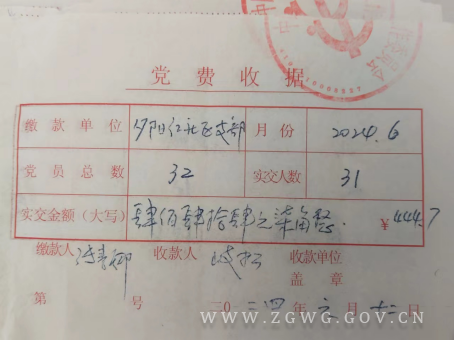 党费收据
缴款单位 夕阳红社区支部 月份 2024.6
党员总数 32 实交人数 31
实交金额（大写） 肆佰肆拾肆元柒角整. ¥444.7
缴款人 收款人 收款单位
盖章
第 号 二〇二四年六月十二日
WWW.ZGWG.GOV.CN